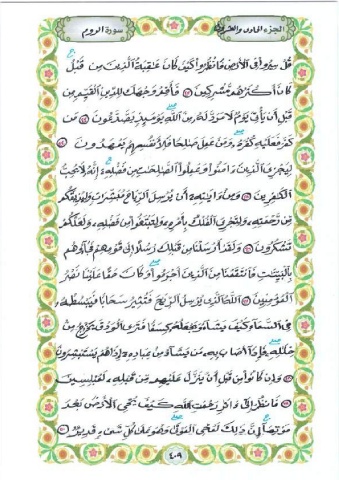 الجزء الحادي والعشرون
سورة الروم
قُلْ سِيرُوا فِي الْأَرْضِ فَانْظُرُوا كَيْفَ كَانَ عَاقِبَةُ الَّذِينَ مِن قَبْلُ
كَانَ أَكْثَرُهُم مُّشْرِكِينَ ٤٢ فَأَقِمْ وَجْهَكَ لِلدِّينِ الْقَيِّمِ مِن
قَبْلِ أَن يَأْتِيَ يَوْمٌ لَّا مَرَدَّ لَهُ مِنَ اللَّهِ يَوْمَئِذٍ يَصَّدَّعُونَ ٤٣ مَن
كَفَرَ فَعَلَيْهِ كُفْرُهُ وَمَنْ عَمِلَ صَالِحًا فَلِأَنفُسِهِمْ يَمْهَدُونَ ٤٤
لِيَجْزِيَ الَّذِينَ ءَامَنُوا وَعَمِلُوا الصَّالِحَاتِ مِن فَضْلِهِ إِنَّهُ لَا يُحِبُّ
الْكَافِرِينَ ٤٥ وَمِنْ ءَايَاتِهِ أَن يُرْسِلَ الرِّيَاحَ مُبَشِّرَاتٍ وَلِيُذِيقَكُم
مِّن رَّحْمَتِهِ وَلِتَجْرِيَ الْفُلْكُ بِأَمْرِهِ وَلِتَبْتَغُوا مِن فَضْلِهِ وَلَعَلَّكُمْ
تَشْكُرُونَ ٤٦ وَلَقَدْ أَرْسَلْنَا مِن قَبْلِكَ رُسُلًا إِلَى قَوْمِهِمْ فَجَاءُوهُم
بِالْبَيِّنَاتِ فَانتَقَمْنَا مِنَ الَّذِينَ أَجْرَمُوا وَكَانَ حَقًّا عَلَيْنَا نَصْرُ
الْمُؤْمِنِينَ ٤٧ اللَّهُ الَّذِي يُرْسِلُ الرِّيَاحَ فَتُثِيرُ سَحَابًا فَيَبْسُطُهُ
فِي السَّمَاءِ كَيْفَ يَشَاءُ وَيَجْعَلُهُ كِسَفًا فَتَرَى الْوَدْقَ يَخْرُجُ مِنْ
خِلَالِهِ فَإِذَا أَصَابَ بِهِ مَن يَشَاءُ مِنْ عِبَادِهِ إِذَا هُمْ يَسْتَبْشِرُونَ
٤٨ وَإِن كَانُوا مِن قَبْلِ أَن يُنَزَّلَ عَلَيْهِم مِّن قَبْلِهِ لَمُبْلِسِينَ
٤٩ فَانظُرْ إِلَى ءَاثَارِ رَحْمَتِ اللَّهِ كَيْفَ يُحْيِي الْأَرْضَ بَعْدَ
مَوْتِهَا إِنَّ ذَلِكَ لَمُحْيِي الْمَوْتَى وَهُوَ عَلَى كُلِّ شَيْءٍ قَدِيرٌ ٥٠
٤٠٩